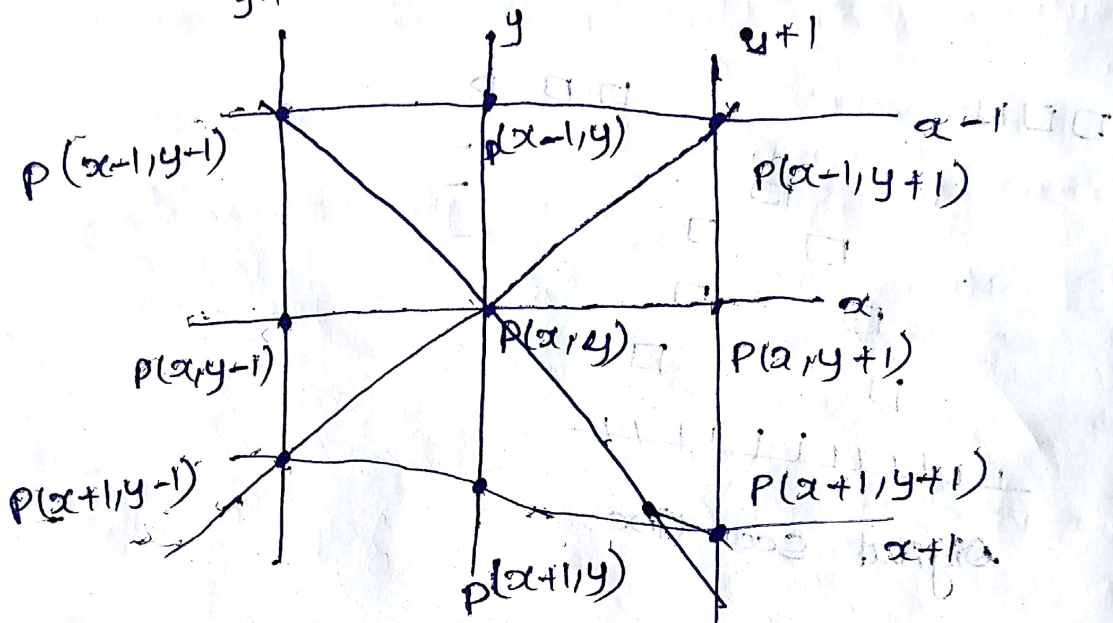 y y+1
x-1
P(x-1,y-1) P(x-1,y) P(x-1,y+1)
x
P(x,y-1) P(x,y) P(x,y+1)
P(x+1,y-1) P(x+1,y) P(x+1,y+1)
x+1